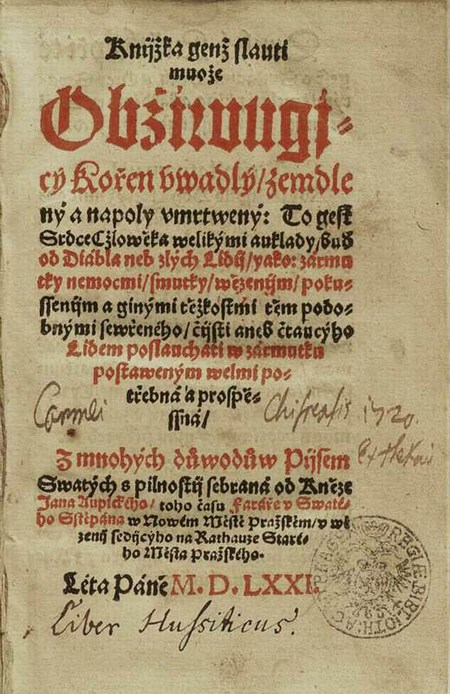 Knijžka genž slauti
muože
Obžiwugj-
cý Kořen vwadlý/ zemdle
ný a napoly vmrtwený: To gest
Srdce Cžlowěka welikými auklady/ buď
od Diábla neb zlých Lidij/ yako: zármu
tky nemocmi/ smutky/ wězenijm/ poku-
ssenijm a ginými těžkostmi těm podo-
bnými sewřeného/ čijsti aneb čtaucýho
Lidem poslauchati w zármutku
postaweným welmi po-
třebná a prospě-
ssná/
Z mnohých důwodůw Pijsem
Swatých s pilnostij sebraná od Kněze
Jana Aupického/ toho času Faráře v Swaté-
ho Sstěpána w Nowém Městě Pražském/ v wě
zenij sedijcýho na Rathauze Staré-
ho Města Pražského.
Léta Páně M. D. LXXI.
1720.
Liber Hussiticus.